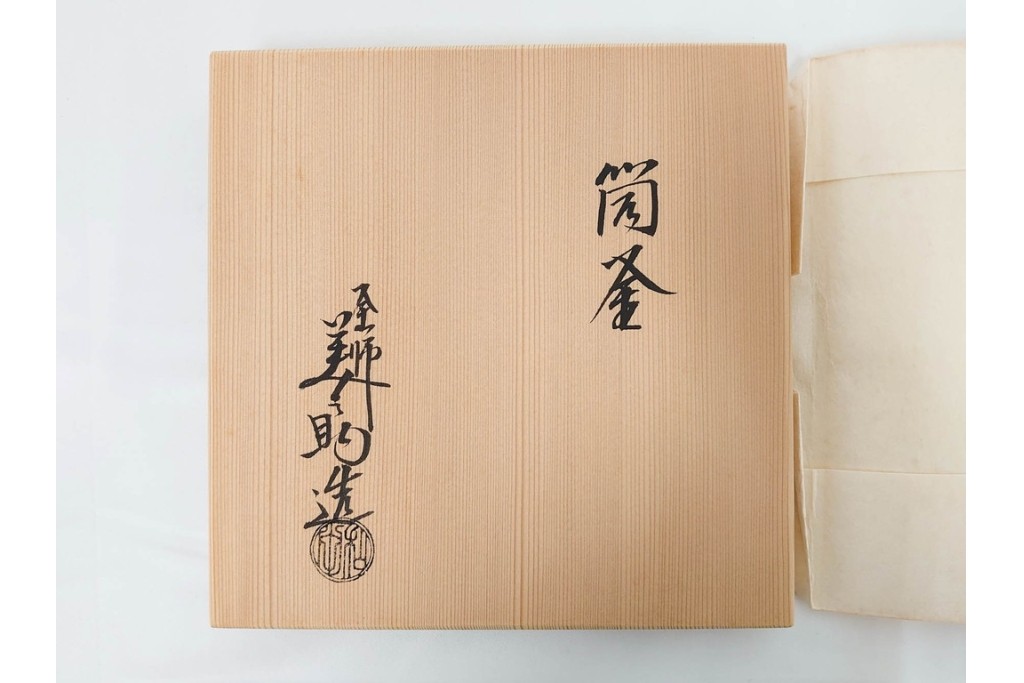 筒釜
釜師
美之助造